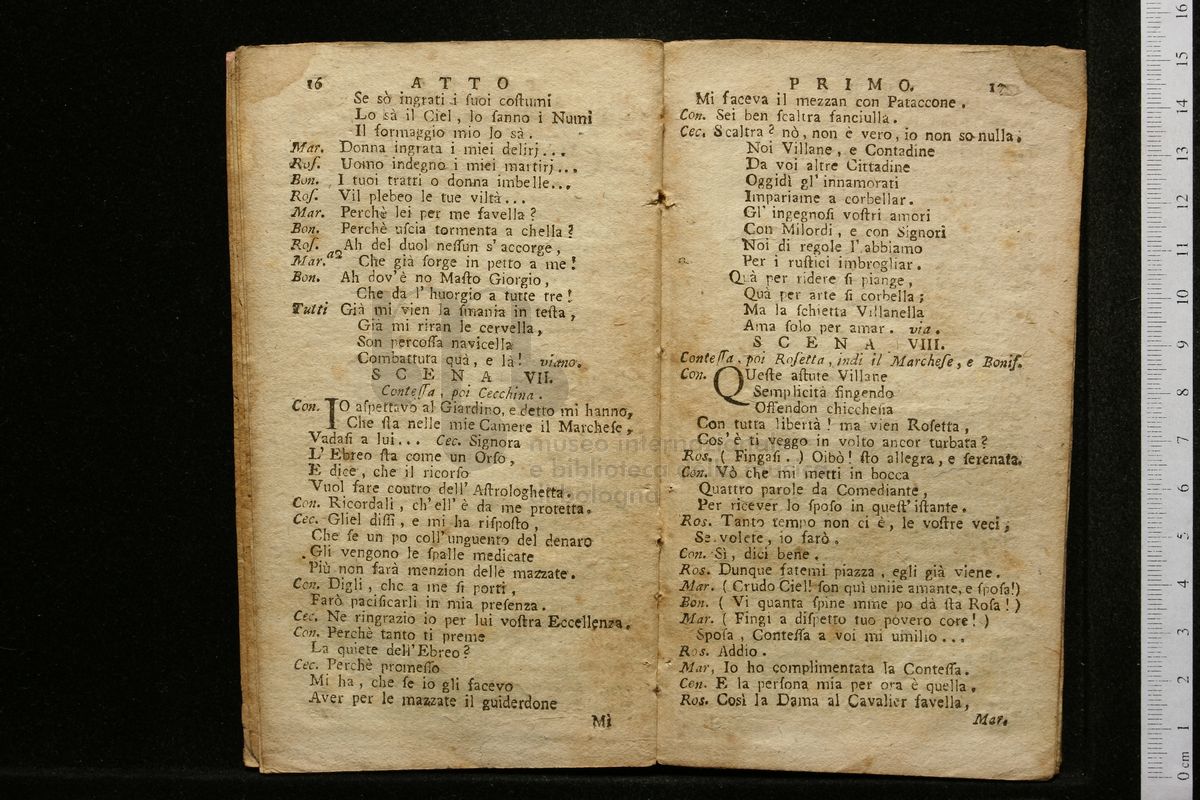 16 ATTO
Se sò ingrati i ſuoi coſtumi
Lo sà il Ciel, lo ſanno i Numi
Il formaggio mio lo sà.
Mar. Donna ingrata i miei delirj...
Roſ. Uomo indegno i miei martirj...
Bon. I tuoi tratti o donna imbelle...
Roſ. Vil plebeo le tue viltà...
Mar. Perchè lei per me favella?
Bon. Perchè uſcia tormenta a chella?
Roſ. Ah del duol neſſun s'accorge,
Mar. a2 Che già ſorge in petto a me!
Bon. Ah dov'è no Maſto Giorgio,
Che da l'huorgio a tutte tre!
Tutti Già mi vien la ſmania in teſta,
Già mi riran le cervella,
Son percoſſa navicella
Combattuta quà, e là! viano.
SCENA VII.
Conteſſa, poi Cecchina.
Con. IO aſpettavo al Giardino, e detto mi hanno,
Che ſta nelle mie Camere il Marcheſe,
Vadaſi a lui... Cec. Signora
L'Ebreo ſta come un Orſo,
E dice, che il ricorſo
Vuol fare contro dell'Aſtrologhetta.
Con. Ricordali, ch'ell'è da me protetta.
Cec. Gliel diſſi, e mi ha riſpoſto,
Che ſe un po coll'unguento del denaro
Gli vengono le ſpalle medicate
Più non farà menzion delle mazzate.
Con. Digli, che a me ſi porti,
Farò pacificarli in mia preſenza.
Cec. Ne ringrazio io per lui voſtra Eccellenza.
Con. Perchè tanto ti preme
La quiete dell'Ebreo?
Cec. Perchè promeſſo
Mi ha, che ſe io gli facevo
Aver per le mazzate il guiderdone
Mi
PRIMO. 17
Mi faceva il mezzan con Pataccone.
Con. Sei ben ſcaltra fanciulla.
Cec. Scaltra? nò, non è vero, io non so nulla.
Noi Villane, e Contadine
Da voi altre Cittadine
Oggidì gl'innamorati
Impariame a corbellar.
Gl'ingegnoſi voſtri amori
Con Milordi, e con Signori
Noi di regole l'abbiamo
Per i ruſtici imbrogliar.
Quà per ridere ſi piange,
Quà per arte ſi corbella;
Ma la ſchietta Villanella
Ama ſolo per amar. via.
SCENA VIII.
Conteſſa, poi Roſetta, indi il Marcheſe, e Boniſ.
Con. QUeſte aſtute Villane
Semplicità fingendo
Offendon chiccheſia
Con tutta libertà! ma vien Roſetta,
Cos'è ti veggo in volto ancor turbata?
Ros. (Fingaſi.) Oibò! ſto allegra, e ſerenata.
Con. Vò che mi metti in bocca
Quattro parole da Comediante,
Per ricever lo ſpoſo in queſt'iſtante.
Ros. Tanto tempo non ci è, le voſtre veci,
Se volete, io farò.
Con. Sì, dici bene.
Ros. Dunque fatemi piazza, egli già viene.
Mar. (Crudo Ciel! ſon quì unite amante, e ſpoſa!)
Bon. (Vi quanta ſpine mme po dà ſta Roſa!)
Mar. (Fingi a diſpetto tuo povero core!)
Spoſa, Conteſſa a voi mi umilio...
Ros. Addio.
Mar, Io ho complimentata la Conteſſa.
Con. E la perſona mia per ora è quella.
Ros. Così la Dama al Cavalier favella,
Mar.